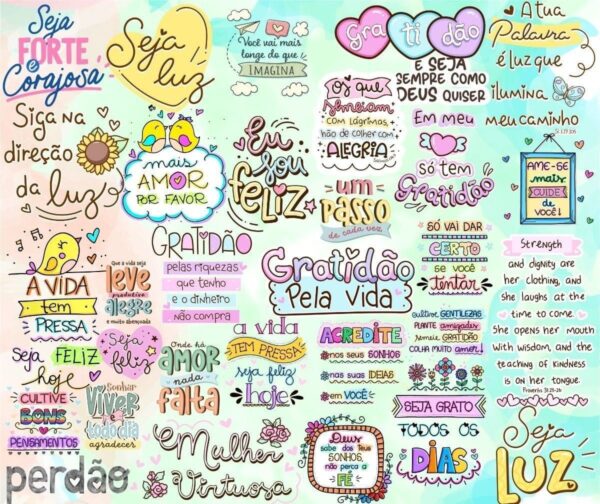 Seja
FORTE
e
Corajosa
Seja
luz
Você vai mais
longe do que
IMAGINA
Gratidão
E SEJA
SEMPRE COMO
DEUS QUISER
A tua
Palavra
é luz que
ilumina
meu caminho
Sl 119:105
Siga na
direção
da luz
mais
AMOR
POR FAVOR
Eu
sou
feliz
Os que
semeiam
com LÁGRIMAS,
hão de colher com
ALEGRIA
um
PASSO
de cada vez
Em meu
Só tem
Gratidão
AME-SE
mais
CUIDE
DE VOCÊ!
A VIDA
tem
PRESSA
Que a vida seja
leve
produtiva
alegre
e muito abençoada
GRATIDÃO
pelas riquezas
que tenho
e o dinheiro
não compra
Gratidão
Pela Vida
SÓ VAI DAR
CERTO
SE VOCÊ
tentar
Strength
and dignity are
her clothing, and
she laughs at the
time to come.
She opens her mouth
with wisdom, and the
teaching of kindness
is on her tongue.
Proverbs 31:25-26
Seja FELIZ
hoje
CULTIVE
BONS
PENSAMENTOS
Seja
feliz
Sonhar
VIVER
e todo dia
agradecer
Onde há
AMOR
nada
falta
a vida
TEM PRESSA
seja feliz
hoje
ACREDITE
nos seus SONHOS
nas suas IDEIAS
em VOCÊ
cultive GENTILEZAS
PLANTE amizades
semeie GRATIDÃO
COLHA MUITO amor!
SEJA GRATO
TODOS OS
DIAS
perdão
Mulher
Virtuosa
Deus
sabe dos Teus
SONHOS,
não perca a
FÉ
Seja
LUZ